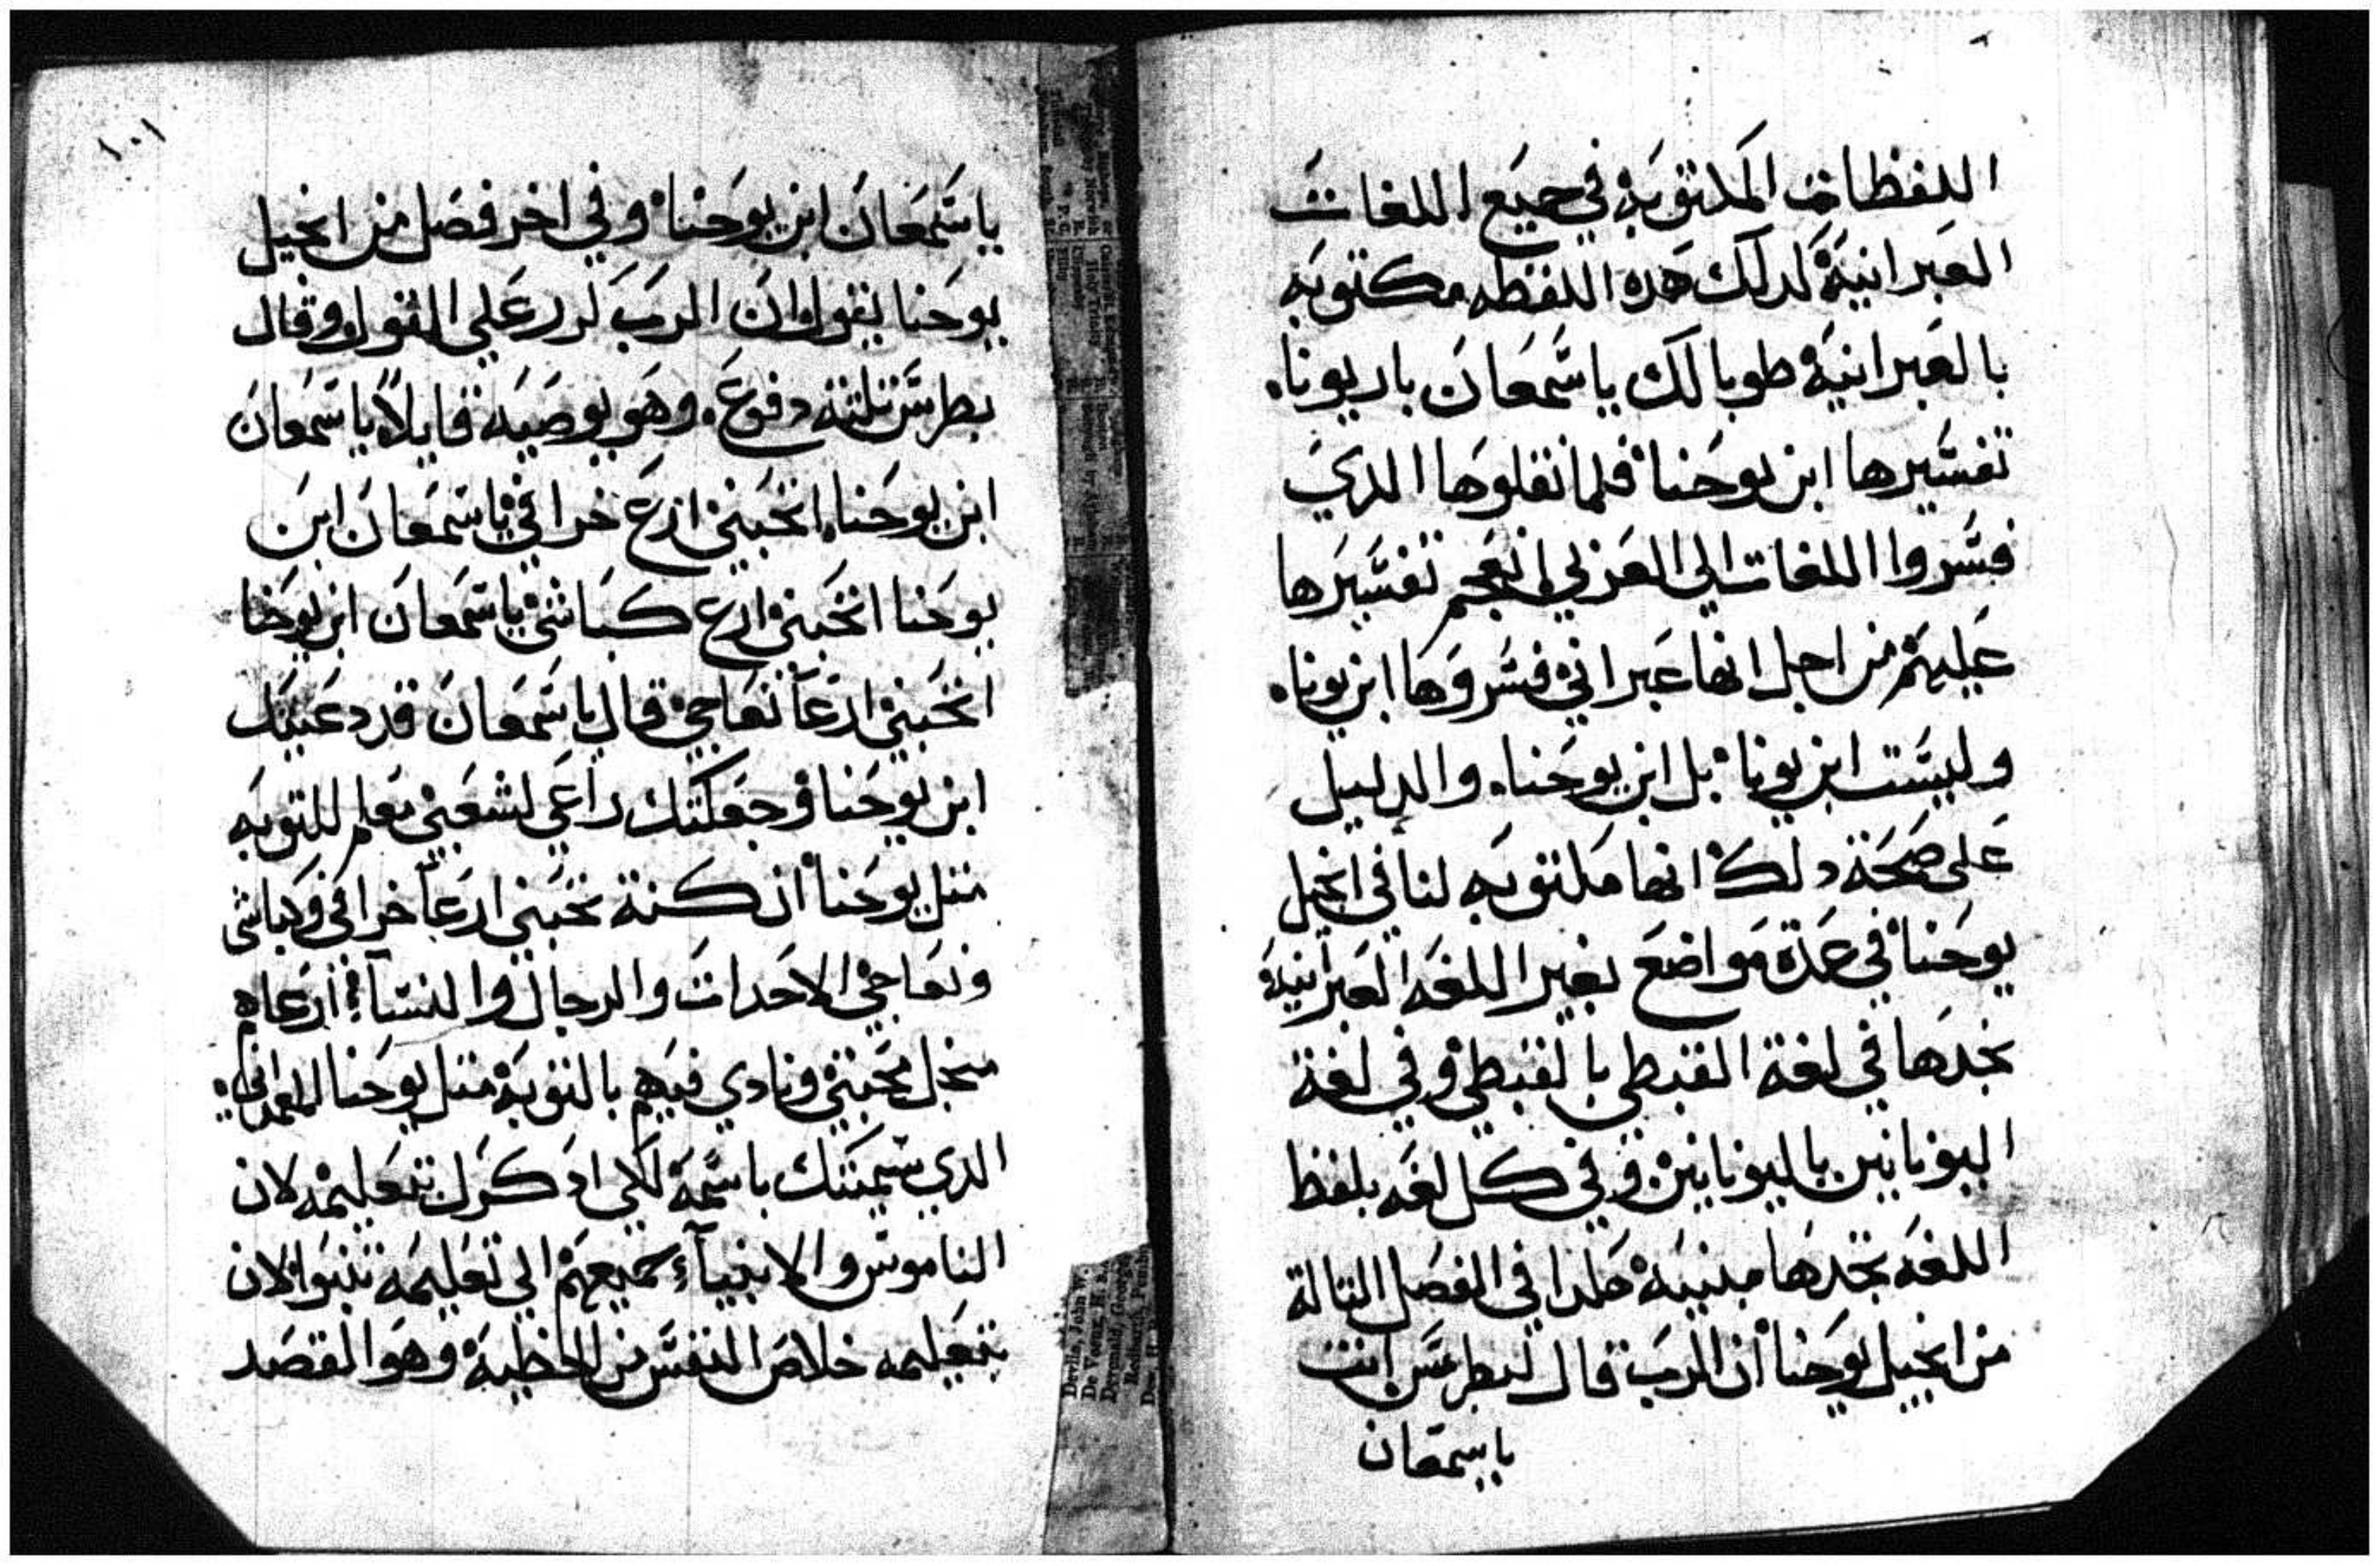 اللفظات المكتوبه في جميع اللغات
العبرانية لدلك هده اللفظه مكتوبه
بالعبرانية طوبا لك ياسمعان باريونا.
تفسيرها ابن يوحنا فلما نقلوها الدي
فسروا اللغات الي العربي انعجم تفسيرها
عليهم من اجل انها عبراني فسروها ابن يونا.
وليست ابن يونا بل ابن يوحنا. والدليل
على صحة دلك انها مكتوبه لنا في انجيل
يوحنا في عدة مواضع بغير اللغه العبرانية
نجدها في لغة القبطي بالقبطي وفي لغة
اليونانين باليونانين وفي كل لغه بلفظ
اللغه تجدها مبنيه هكدا في الفصل التالة
من انجيل يوحنا ان الرب قال لبطرس انت
ياسمعان
١٠١
ياسمعان ابن يوحنا وفي اخر فصل من انجيل
يوحنا يقول ان الرب كرر علي القول وقال
بطرس تلتة دفوع. وهو يوصيه قايلاً ياسمعان
ابن يوحنا. اتحبني ارع خرافي ياسمعان ابن
يوحنا اتحبني ارع كباشي ياسمعان ابن يوحنا
اتحبني ارعا نعاجي قال ياسمعان قد دعيتك
ابن يوحنا وجعلتك راعي لشعبي معلم للتوبه
متل يوحنا ان كنة تحبني ارعا خرافي وكباشي
ونعاجي الاحدات والرجال والنسآ ارعاهم
منجل محبتي ونادي فيهم بالتوبة متل يوحنا المعمداني
الدي سميتك باسمه لكي ادكرك بتعليمه لان
الناموس والانبيآء جميعهم الي تعليمه تنبوا لان
بتعليمه خلاص النفس من الخطية وهو القصد